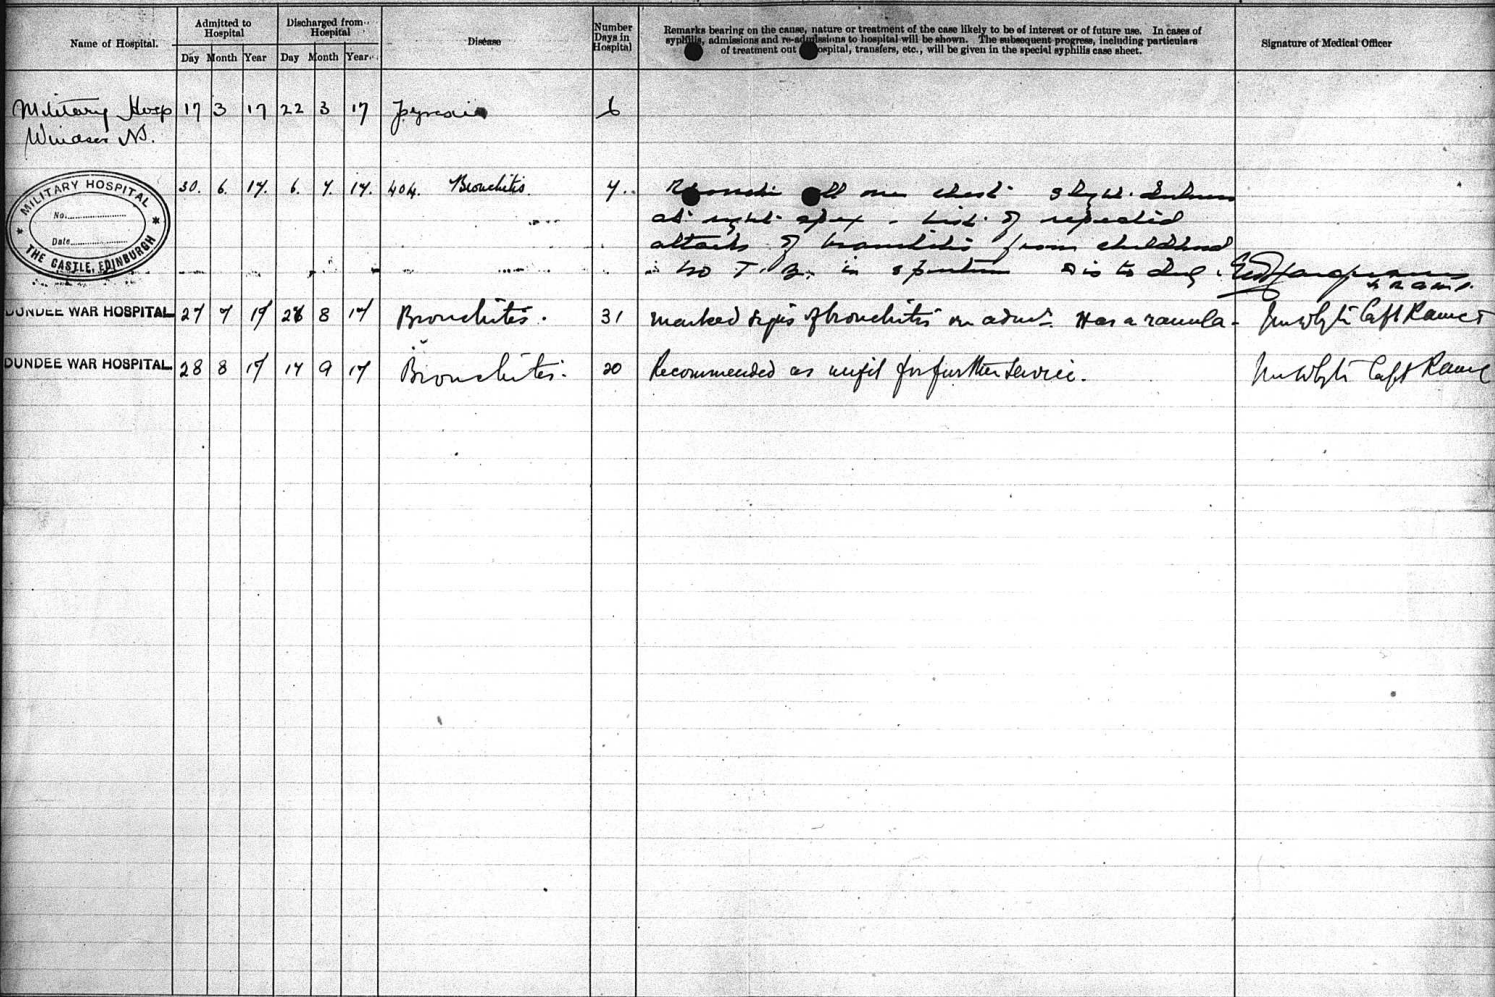 Name of Hospital.
Admitted to Hospital
Discharged from Hospital
Disease
Number Days in Hospital
Remarks bearing on the cause, nature or treatment of the case likely to be of interest or of future use. In cases of
syphilis, admissions and re-admissions to hospital will be shown. The subsequent progress, including particulars
of treatment out of hospital, transfers, etc., will be given in the special syphilis case sheet.
Signature of Medical Officer
Day Month Year Day Month Year
Military Hosp 17 3 17 22 3 17 6
Windsor
MILITARY HOSPITAL
No.
Date
THE CASTLE, EDINBURGH
30. 6. 17. 6. 7. 17. 404. Bronchitis. 7. all over chest. Slight
at right apex - hist. of repeated
attacks of bronchitis from childhood
no T.B. in sputum Dis to duty.
R.A.M.C.
DUNDEE WAR HOSPITAL 27 7 17 8 17 Bronchitis. 31 Marked signs of bronchitis on admn. Has a ranula - Whyte Capt RAMCT
DUNDEE WAR HOSPITAL 28 8 17 9 17 Bronchitis. 20 Recommended as unfit for further service. Whyte Capt RAMC